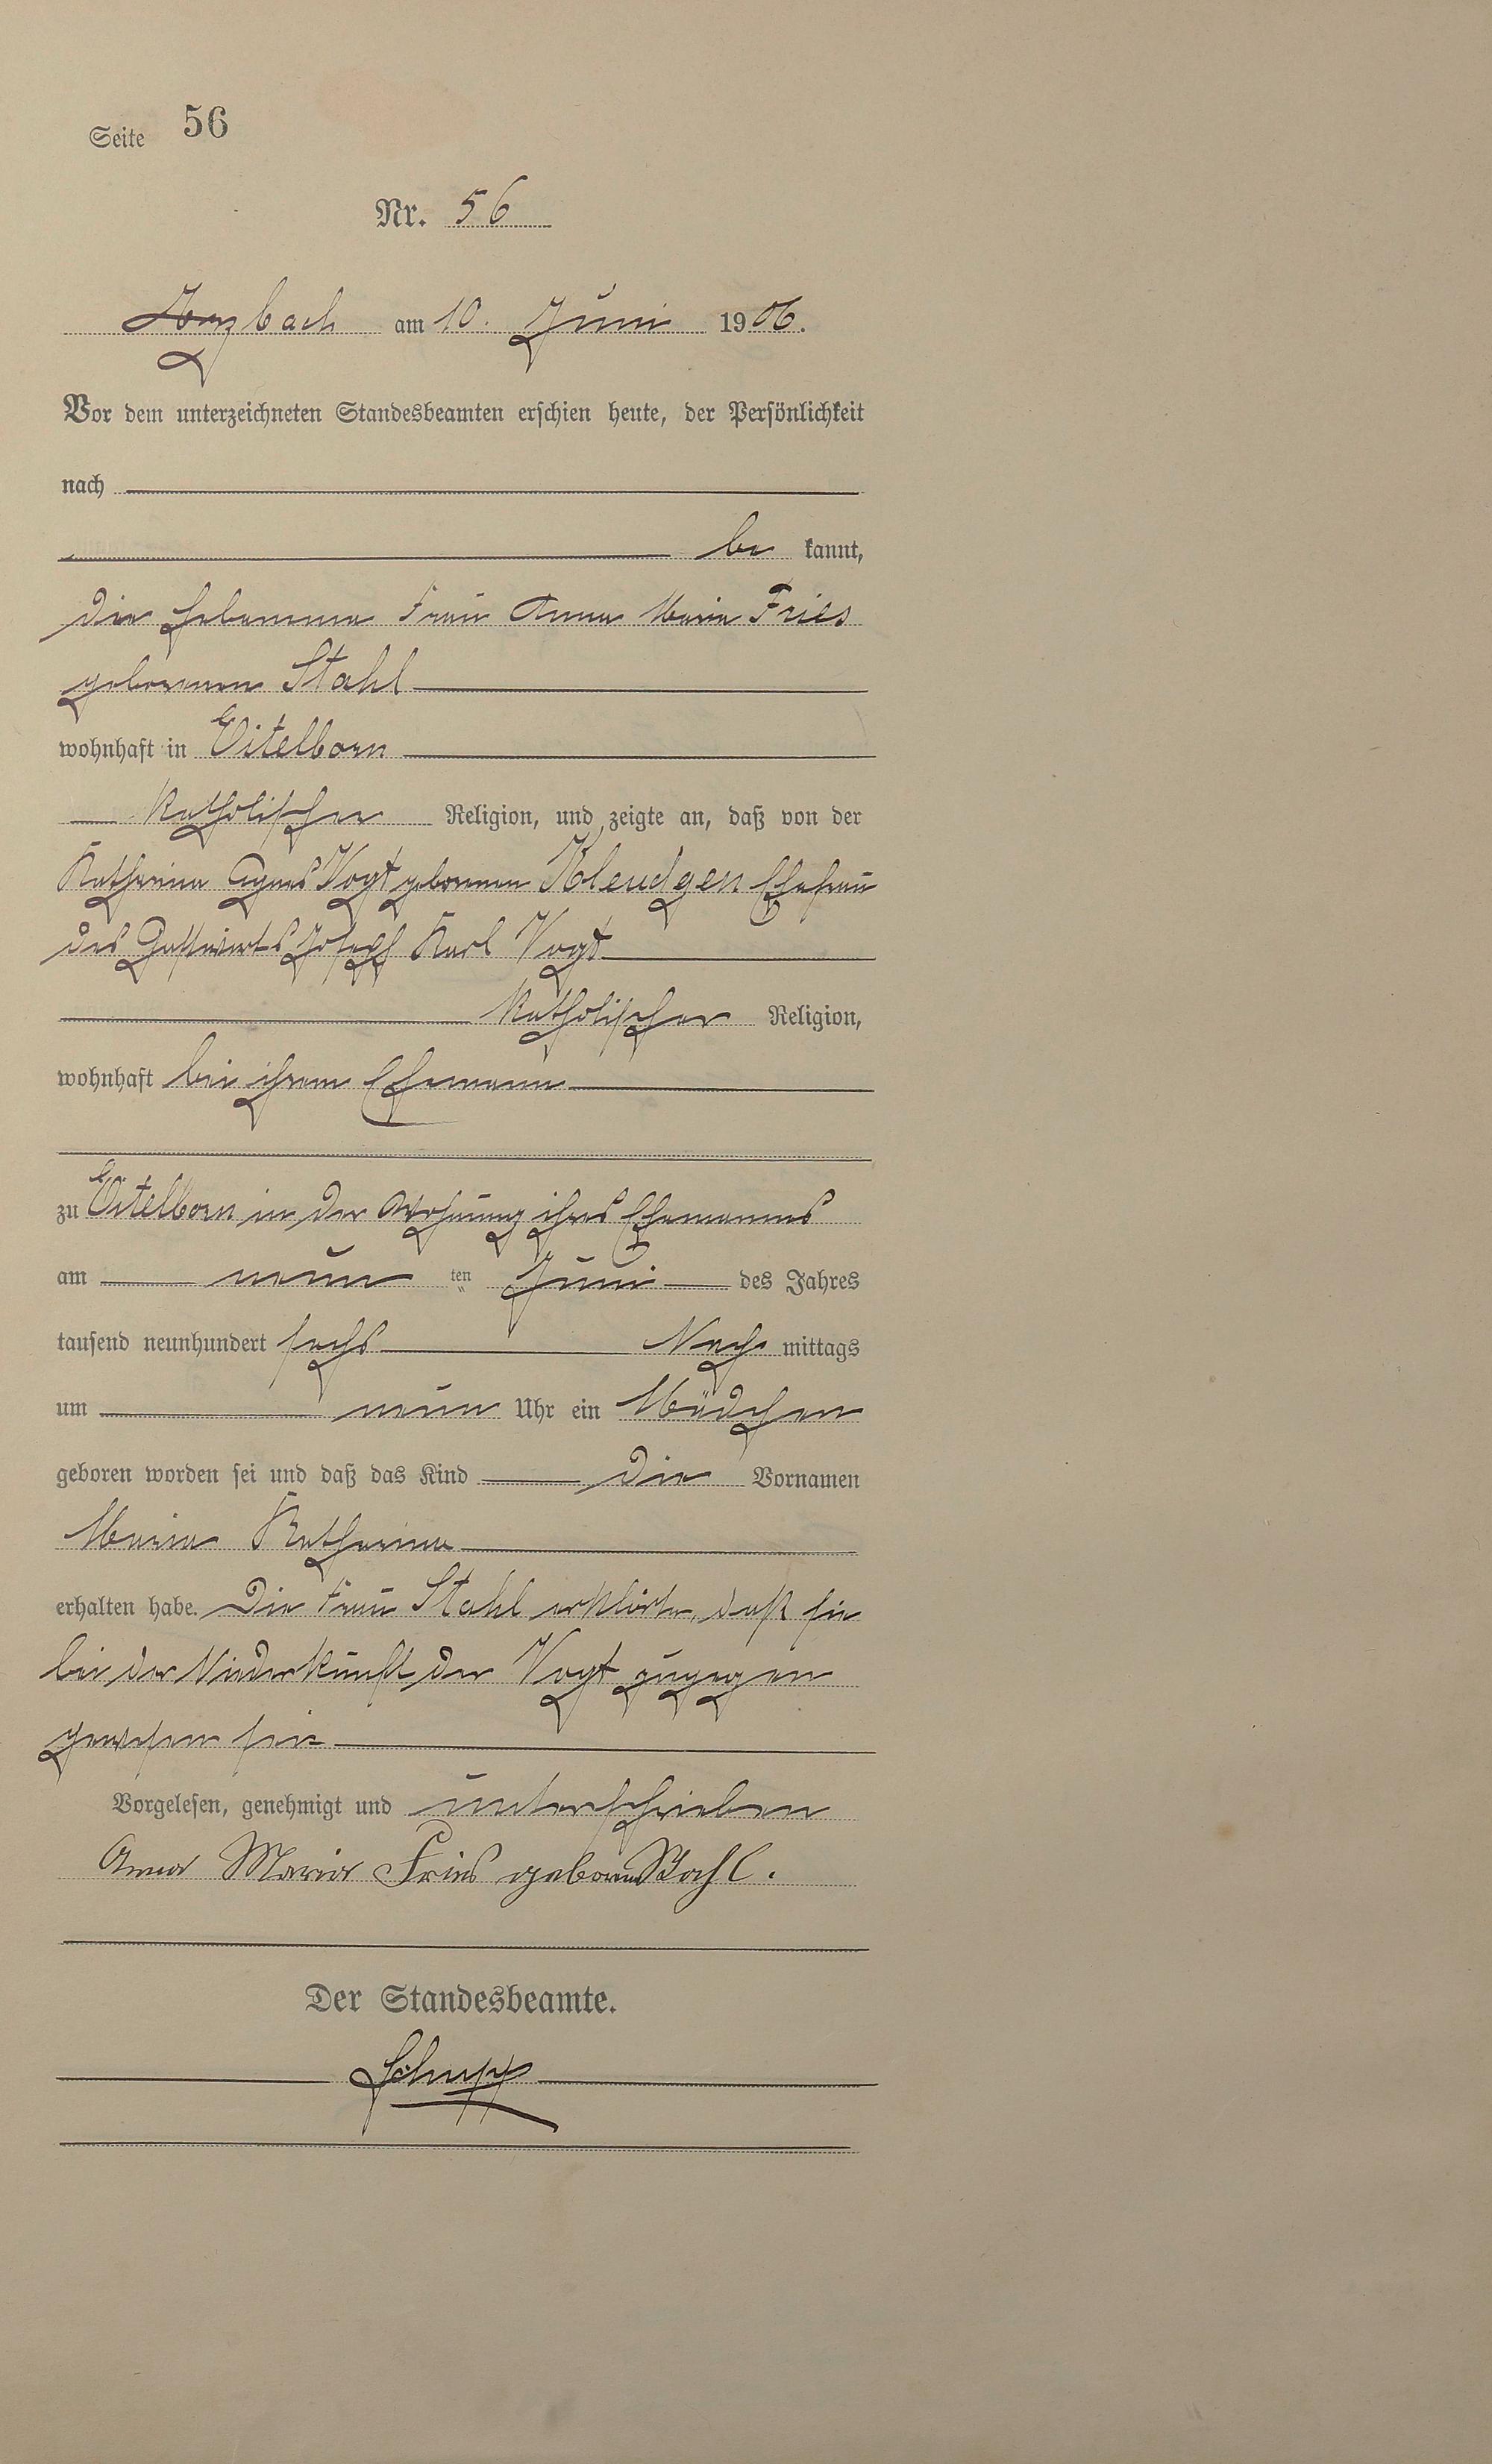 Seite 56
Nr. 56
Arzbach am 10. Juni 1906.
Vor dem unterzeichneten Standesbeamten erschien heute, der Persönlichkeit
nach
be kannt,
die Hebamme Frau Anna Maria Fries
geborenen Stahl
wohnhaft in Eitelborn
Katholischer Religion, und zeigte an, daß von der
Katharina Agnes Vogt geborenen Kleudgen Ehefrau
des Gastwirts Joseph Karl Vogt
Katholischer Religion,
wohnhaft bei ihrem Ehemann
zu Eitelborn in der Wohnung ihres Ehemannes
am neun ten Juni des Jahres
tausend neunhundert sechs Nach mittags
um neun Uhr ein Mädchen
geboren worden sei und daß das Kind die Vornamen
Maria Katharina
erhalten habe. Die Frau Stahl erklärte, daß sie
bei der Niederkunft der Vogt zugegen
gewesen sei
Vorgelesen, genehmigt und unterschrieben
Anna Maria Fries geborne Stahl.
Der Standesbeamte.
Schupp